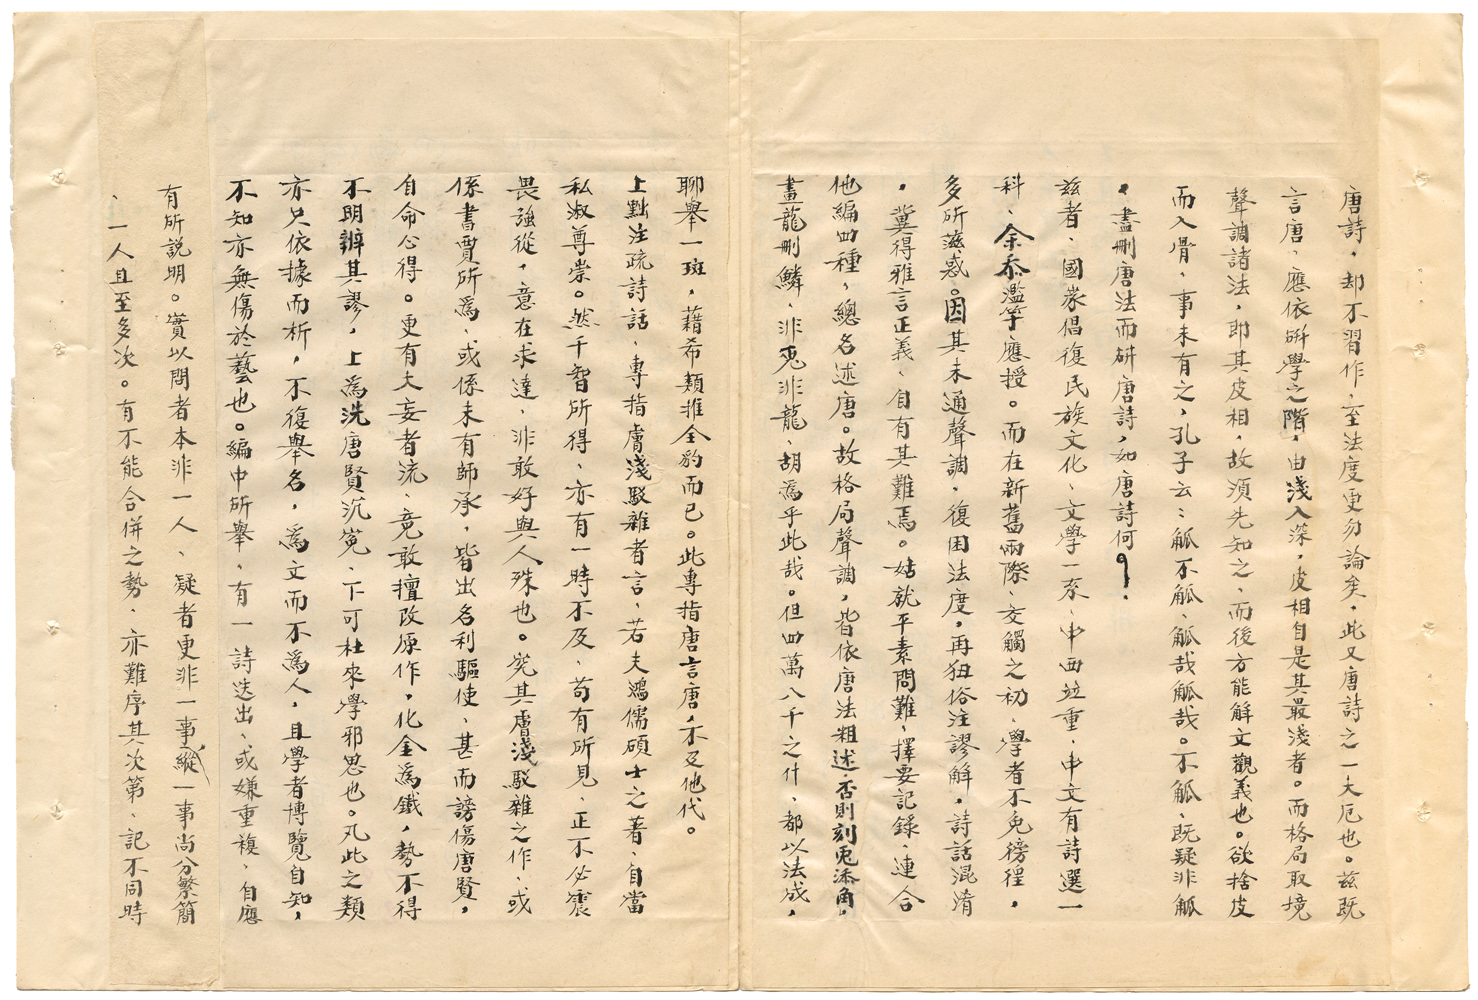 唐詩，却不習作，至法度更勿論矣，此又唐詩之一大厄也。茲既
言唐、應依研學之階，由淺入深，皮相自是其最淺者。而格局取境
聲調諸法，即其皮相，故須先知之、而後方能解文觀義也。欲捨皮
而入骨、事未有之，孔子云：觚不觚、觚哉觚哉。不觚、既疑非觚
，盡刪唐法而研唐詩，如唐詩何？
茲者、國家倡復民族文化、文學一系、中西並重、中文有詩選一
科、余忝濫竽應授。而在新舊兩際、交觸之初、學者不免徬徨，
多所滋惑。因其未通聲調、復困法度，再狃俗注謬解，詩話混淆
，冀得雅言正義、自有其難焉。姑就平素問難、擇要記錄、連合
他編四種、總名述唐。故格局聲調，皆依唐法粗述、否則刻兎添角，
畫龍刪鱗、非兎非龍、胡為乎此哉。但四萬八千之什、都以法成，
聊舉一斑，藉希類推全豹而已。此專指唐言唐，不及他代。
上黜注疏詩話、專指膚淺駁雜者言、若夫鴻儒碩士之著、自當
私淑尊崇。然千智所得、亦有一時不及、苟有所見、正不必震
畏強從，意在求達、非敢好與人殊也。究其膚淺駁雜之作、或
係書賈所為、或係未有師承，皆出名利驅使、甚而謗傷唐賢，
自命公得。更有大妄者流、竟敢擅改原作，化金為鐵，勢不得
不明辨其謬，上為洗唐賢沉冤、下可杜來學邪思也。凡此之類
亦只依據而析，不復舉名，為文而不為人，且學者博覽自知，
不知亦無傷於藝也。編中所舉、有一詩迭出、或嫌重複、自應
有所說明。實以問者本非一人、疑者更非一事、縱一事尚分繁簡
、一人且至多次。有不能合併之勢、亦難序其次第、記不同時